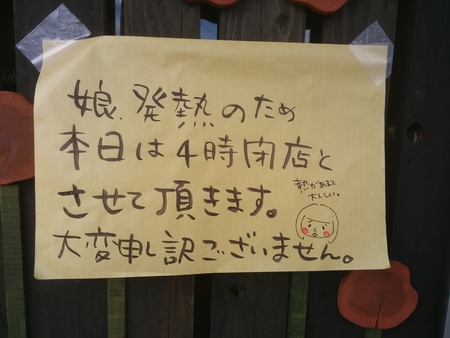 娘、発熱のため
本日は4時閉店と
させて頂きます。
大変申し訳ございません。
熱があると
大人しい。